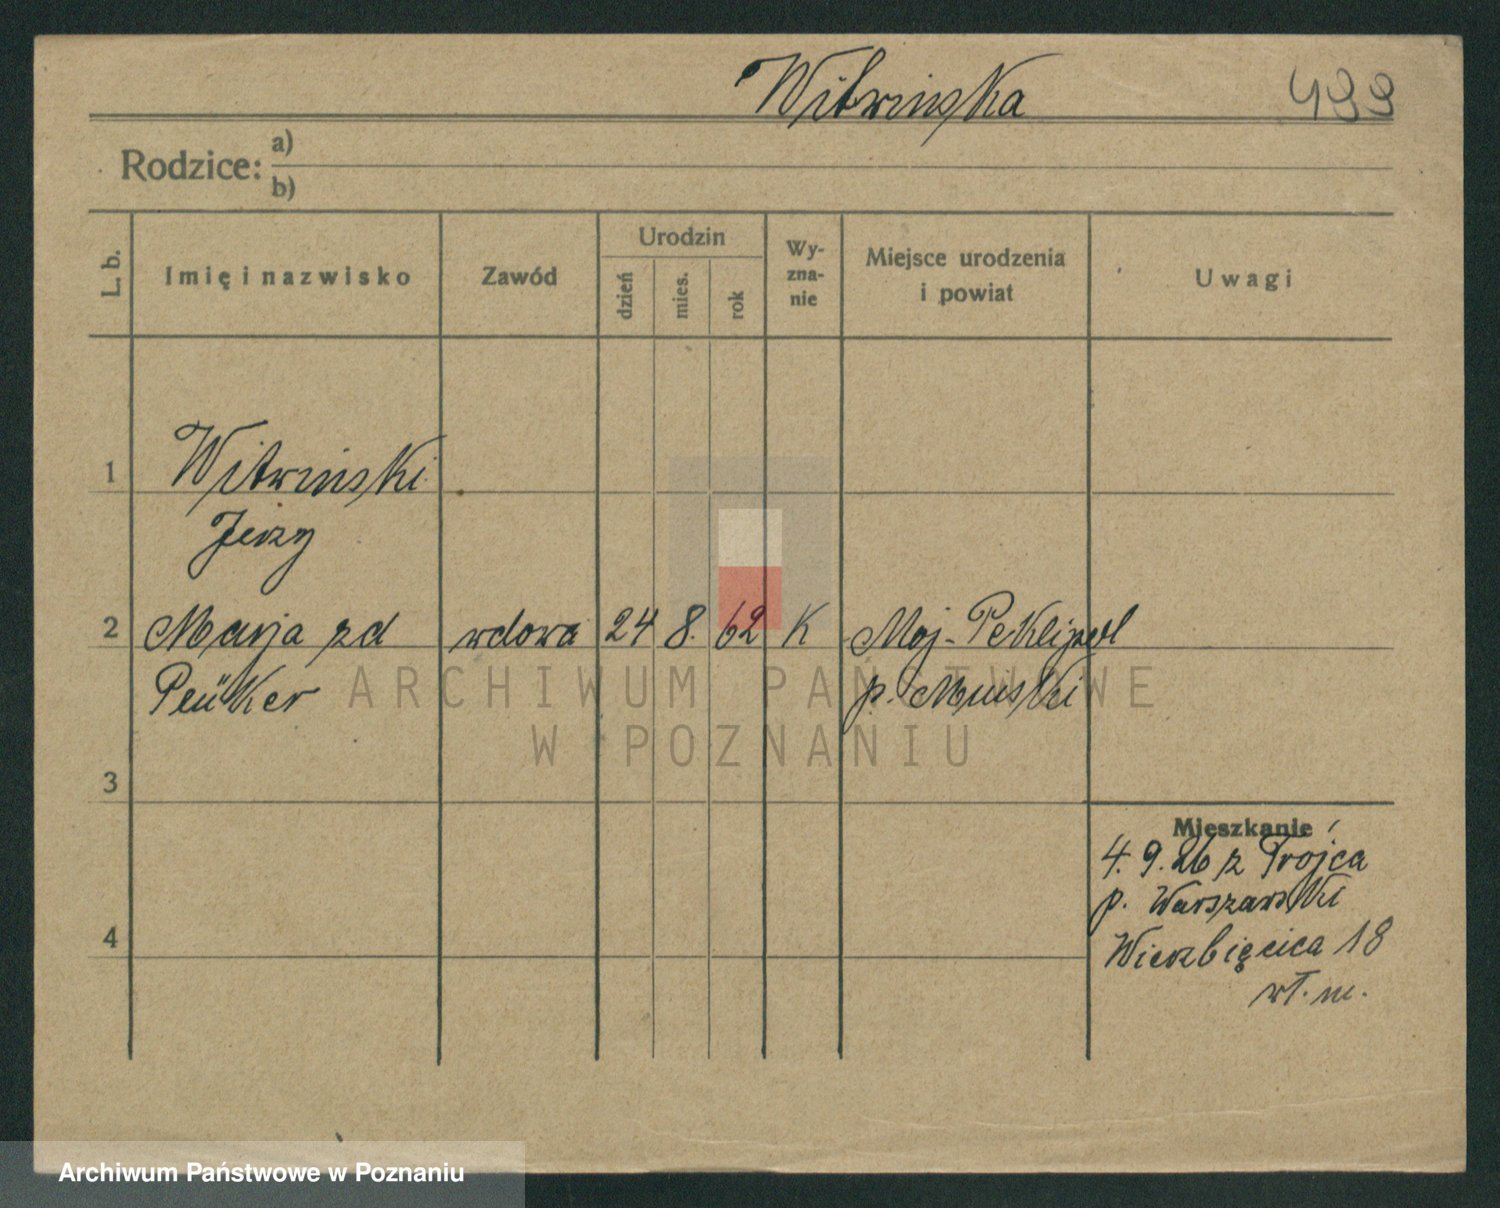 Witwinska 499
Rodzice: a)
b)
L. b. Imię i nazwisko Zawód Urodzin dzień mies. rok Wy-zna-nie Miejsce urodzenia i powiat Uwagi
1 Witwinski
Jerzy
2 Marja zd wdowa 24 8. 62 K Maj.
Peüker p. Minski
ARCHIWUM PAŃSTWOWE
W POZNANIU
3
Mieszkanie
4. 9. 26 z Trojca
p. Warszawski
4 Wierzbięcica 18
wł. m.
Archiwum Państwowe w Poznaniu